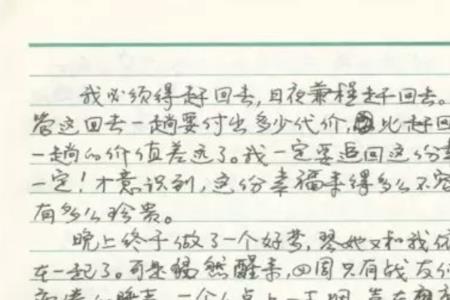 我必须得赶回去,日夜兼程赶回去。
管这回去一趟要付出多少代价,比起赶回
一趟的价值差远了。我一定要追回这份幸
一定!才意识到,这份幸福来得多么不容
有多么珍贵。
晚上终于做了一个好梦,琴她又和我依
在一起了。可是猛然醒来,四周只有战友们
一个人